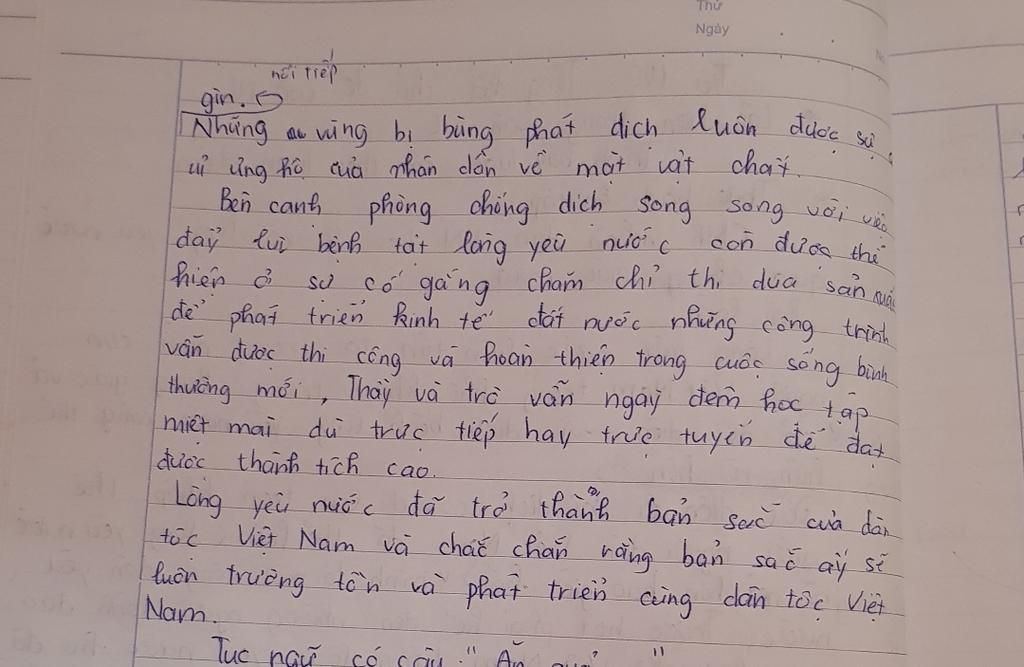 Thứ
Ngày
nối tiếp
gìn.
Những vùng bị bùng phát dịch luôn được sự
ủng hộ của nhân dân về mặt vật chất.
Bên cạnh phòng chống dịch song song với việc
đẩy lùi bệnh tật lòng yêu nước còn được thể
hiện ở sự cố gắng chăm chỉ thi đua sản xuất
để phát triển kinh tế đất nước những công trình
vẫn được thi công và hoàn thiện trong cuộc sống bình
thường mới, Thầy và trò vẫn ngày đêm học tập
miệt mài dù trực tiếp hay trực tuyến để đạt
được thành tích cao.
Lòng yêu nước đã trở thành bản sắc của dân
tộc Việt Nam và chắc chắn rằng bản sắc ấy sẽ
luôn trường tồn và phát triển cùng dân tộc Việt
Nam.
Tục ngữ có câu "Ăn quả "